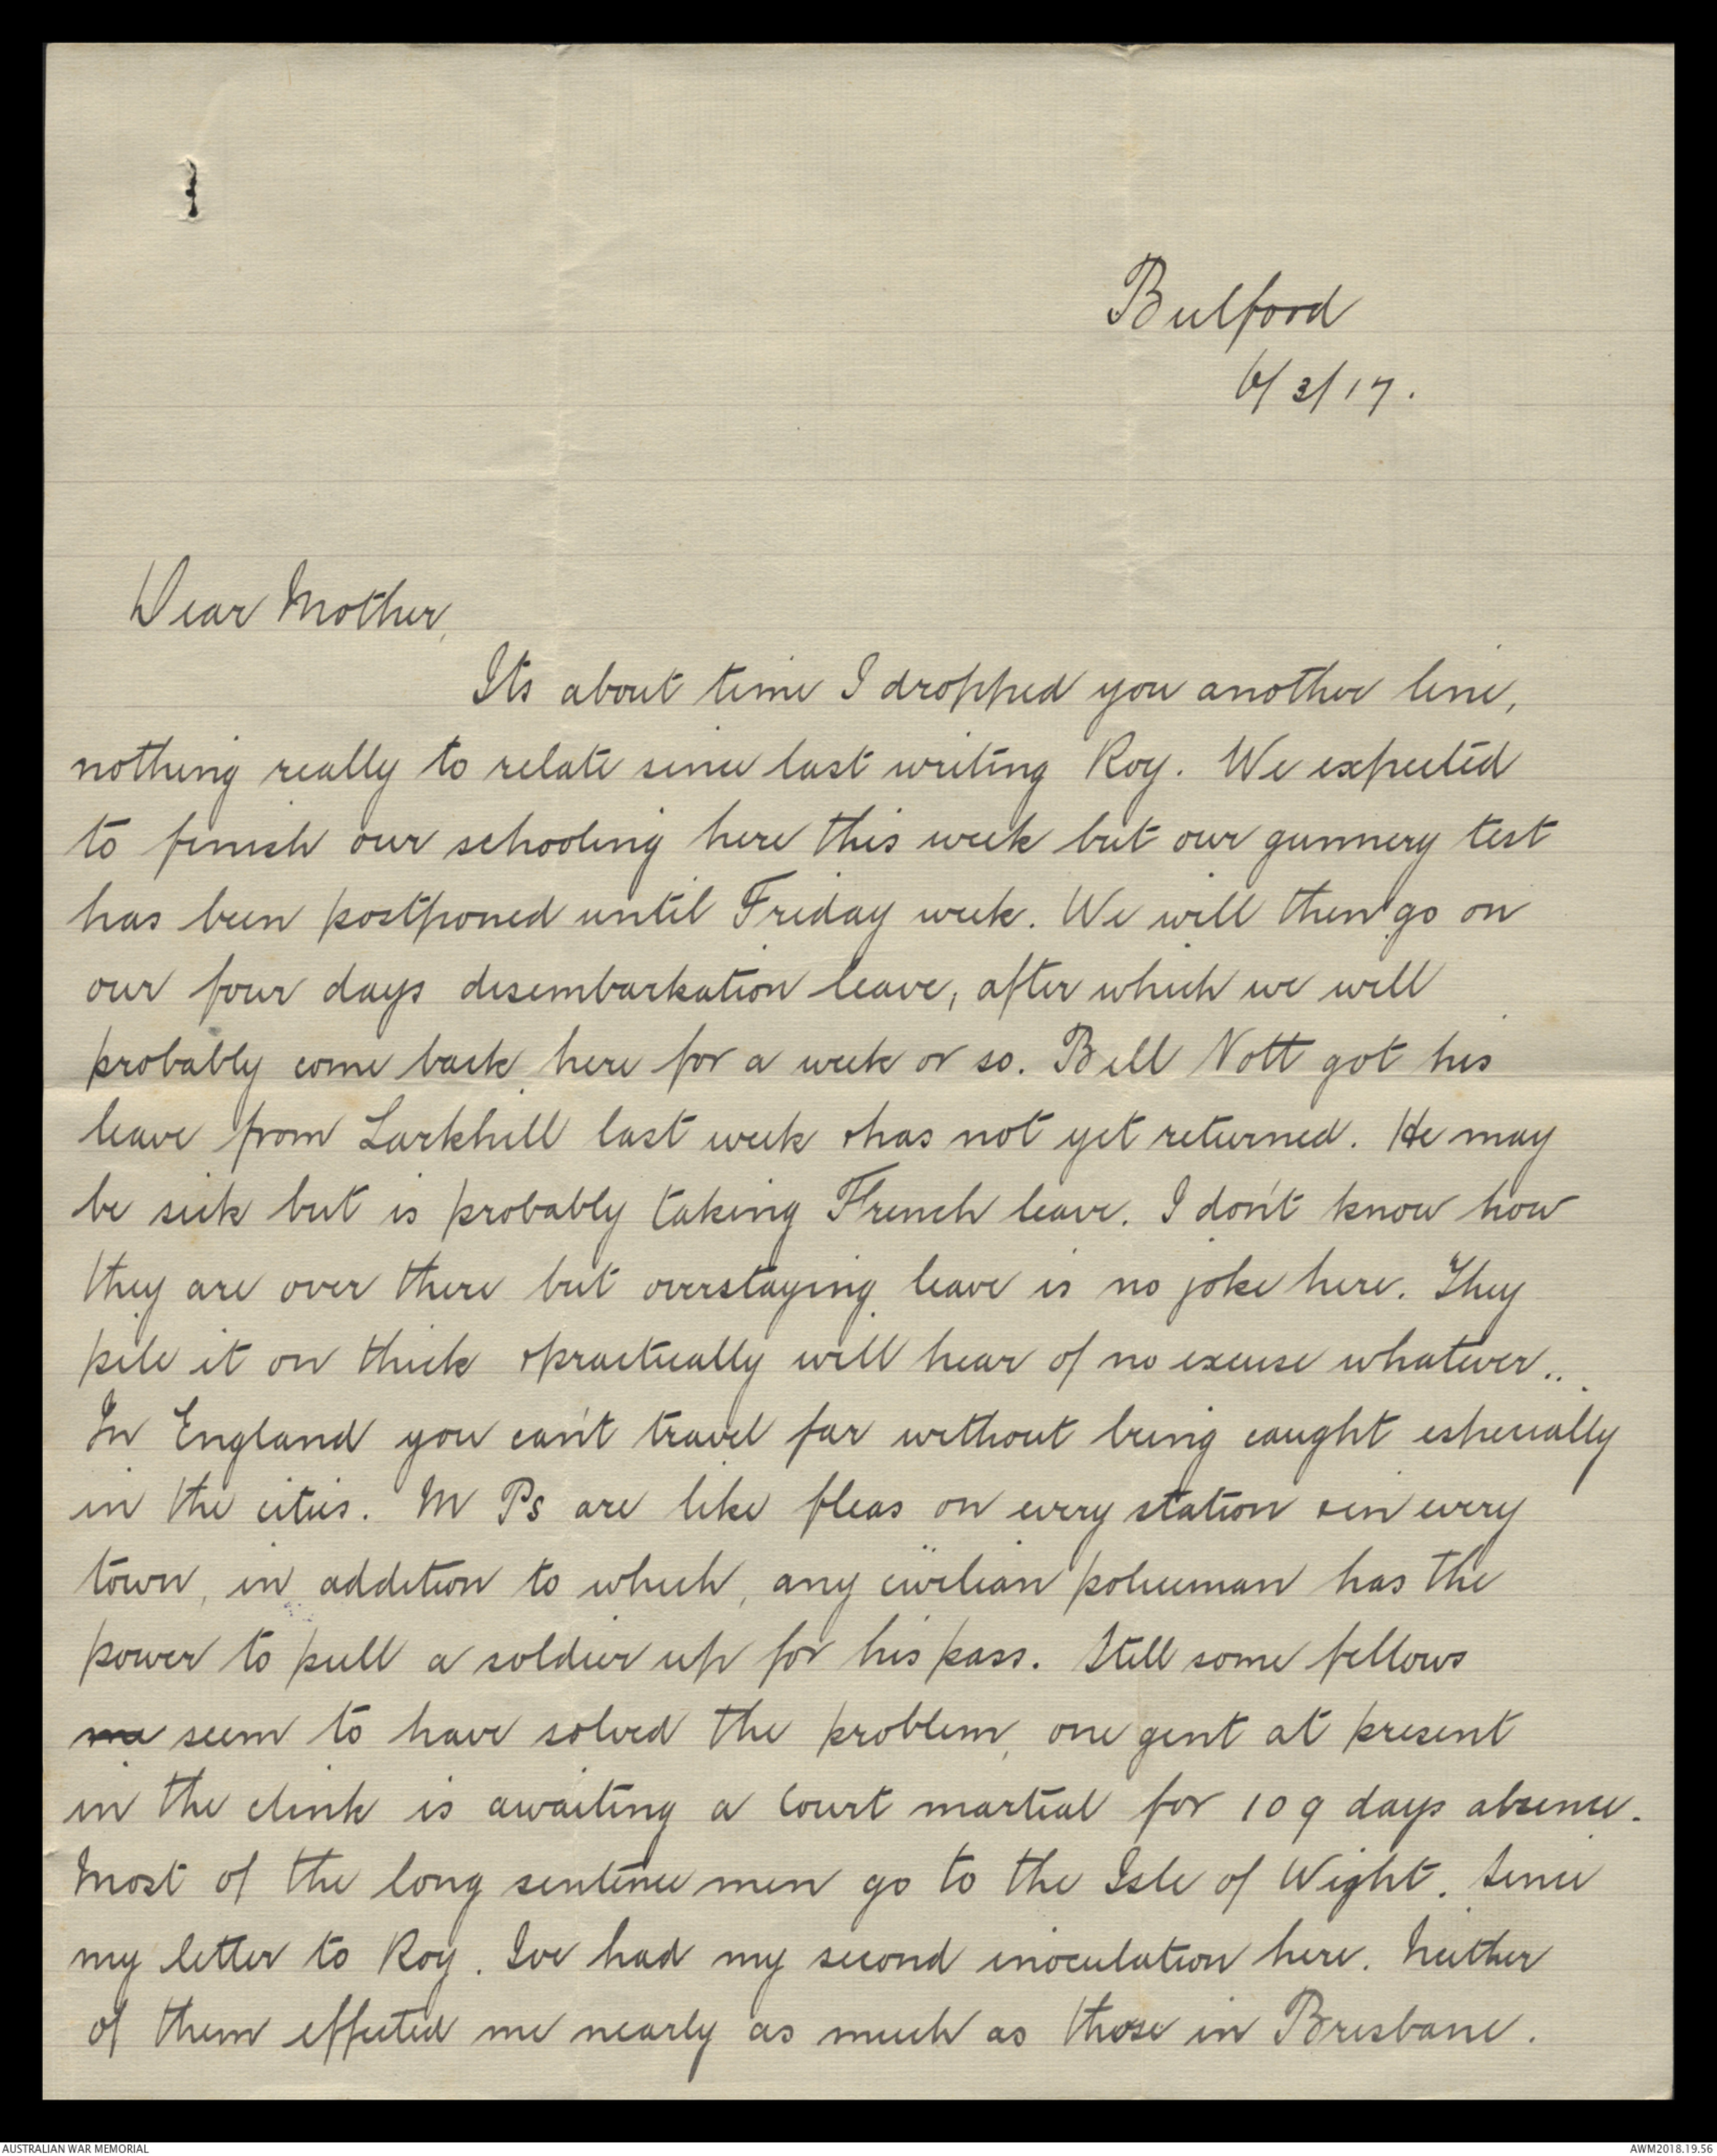 Bulford
6/3/17.
Dear Mother,
Its about time I dropped you another line,
nothing really to relate since last writing Roy. We expected
to finish our schooling here this week but our gunnery test
has been postponed until Friday week. We will then go on
our four days disembarkation leave, after which we will
probably come back here for a week or so. Bill Nott got his
leave from Larkhill last week & has not yet returned. He may
be sick but is probably taking French leave. I don't know how
they are over there but overstaying leave is no joke here. They
pile it on thick & practically will hear of no excuse whatever..
In England you can't travel far without being caught especially
in the cities. M Ps are like fleas on every station & in every
town, in addition to which, any civilian policeman has the
power to pull a soldier up for his pass. Still some fellows
seem to have solved the problem, one gent at present
in the clink is awaiting a Court martial for 109 days absence.
Most of the long sentence men go to the Isle of Wight. Since
my letter to Roy. Ive had my second inoculation here. Neither
of them effected me nearly as much as those in Brisbane.
AUSTRALIAN WAR MEMORIAL
AWM2018.19.56